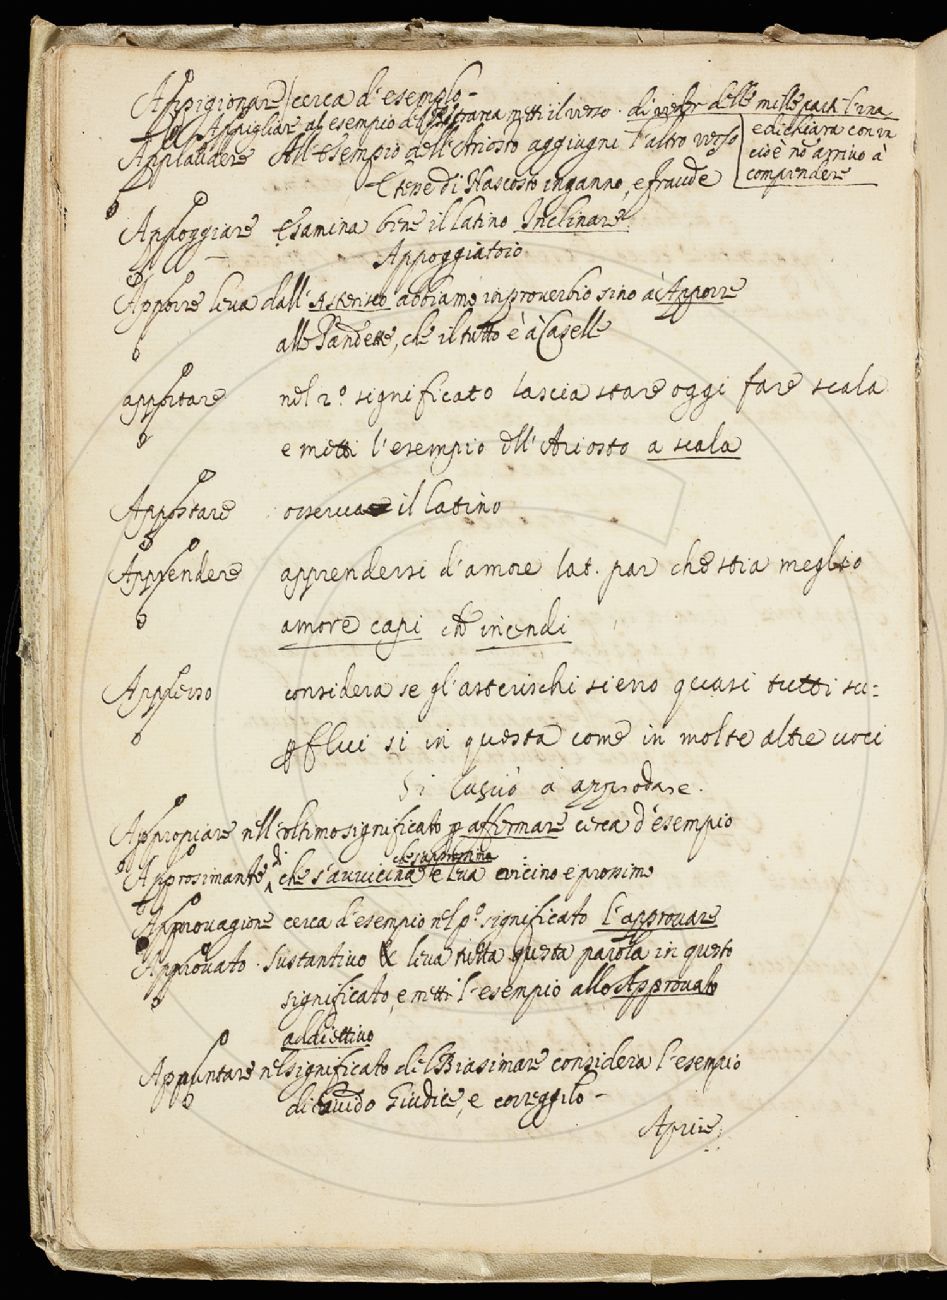 Appigionare cerca d'esempio -
Appigliare al esempio del Petrarca metti il verso di veder delle mille parti l'una
Applaudere All'esempio dell'Ariosto aggiugni l'altro verso
e dichiara
cioè nō arrivo à
comprendere
E tesse di Nascosto inganno, e fraude
Appoggiare Esamina bene il latino Inclinare
Appoggiatoio
Apporre leva dall'Asterisco abbiamo in proverbio sino à Apporre
alle Pandette, che il tutto è à Caselle
apportare nel 2.º significato lascia stare oggi fare scala
e metti l'esempio dell'Ariosto a scala
Appostare osservare il latino
Apprendere apprendersi d'amore lat. par che stia meglio
amore capi che incendi
Appresso considera se gl'asterischi sieno quasi tutti su=
perflui si in questa come in molte altre voci
Si lasciò a approdare.
Appropiare nell'ultimo significato p affermare cerca d'esempio
Approsimante di che s'avvicina e leva vicino e prossimo
Approvagione cerca d'esempio nel pº significato l'approvare
Approvato. Sustantivo leva tutta questa parola in questo
significato, e metti l'esempio allo Approvato
addiettivo
Appuntare nel significato del Biasimare considera l'esempio
di Guido Giudice, e correggilo -
Aprire